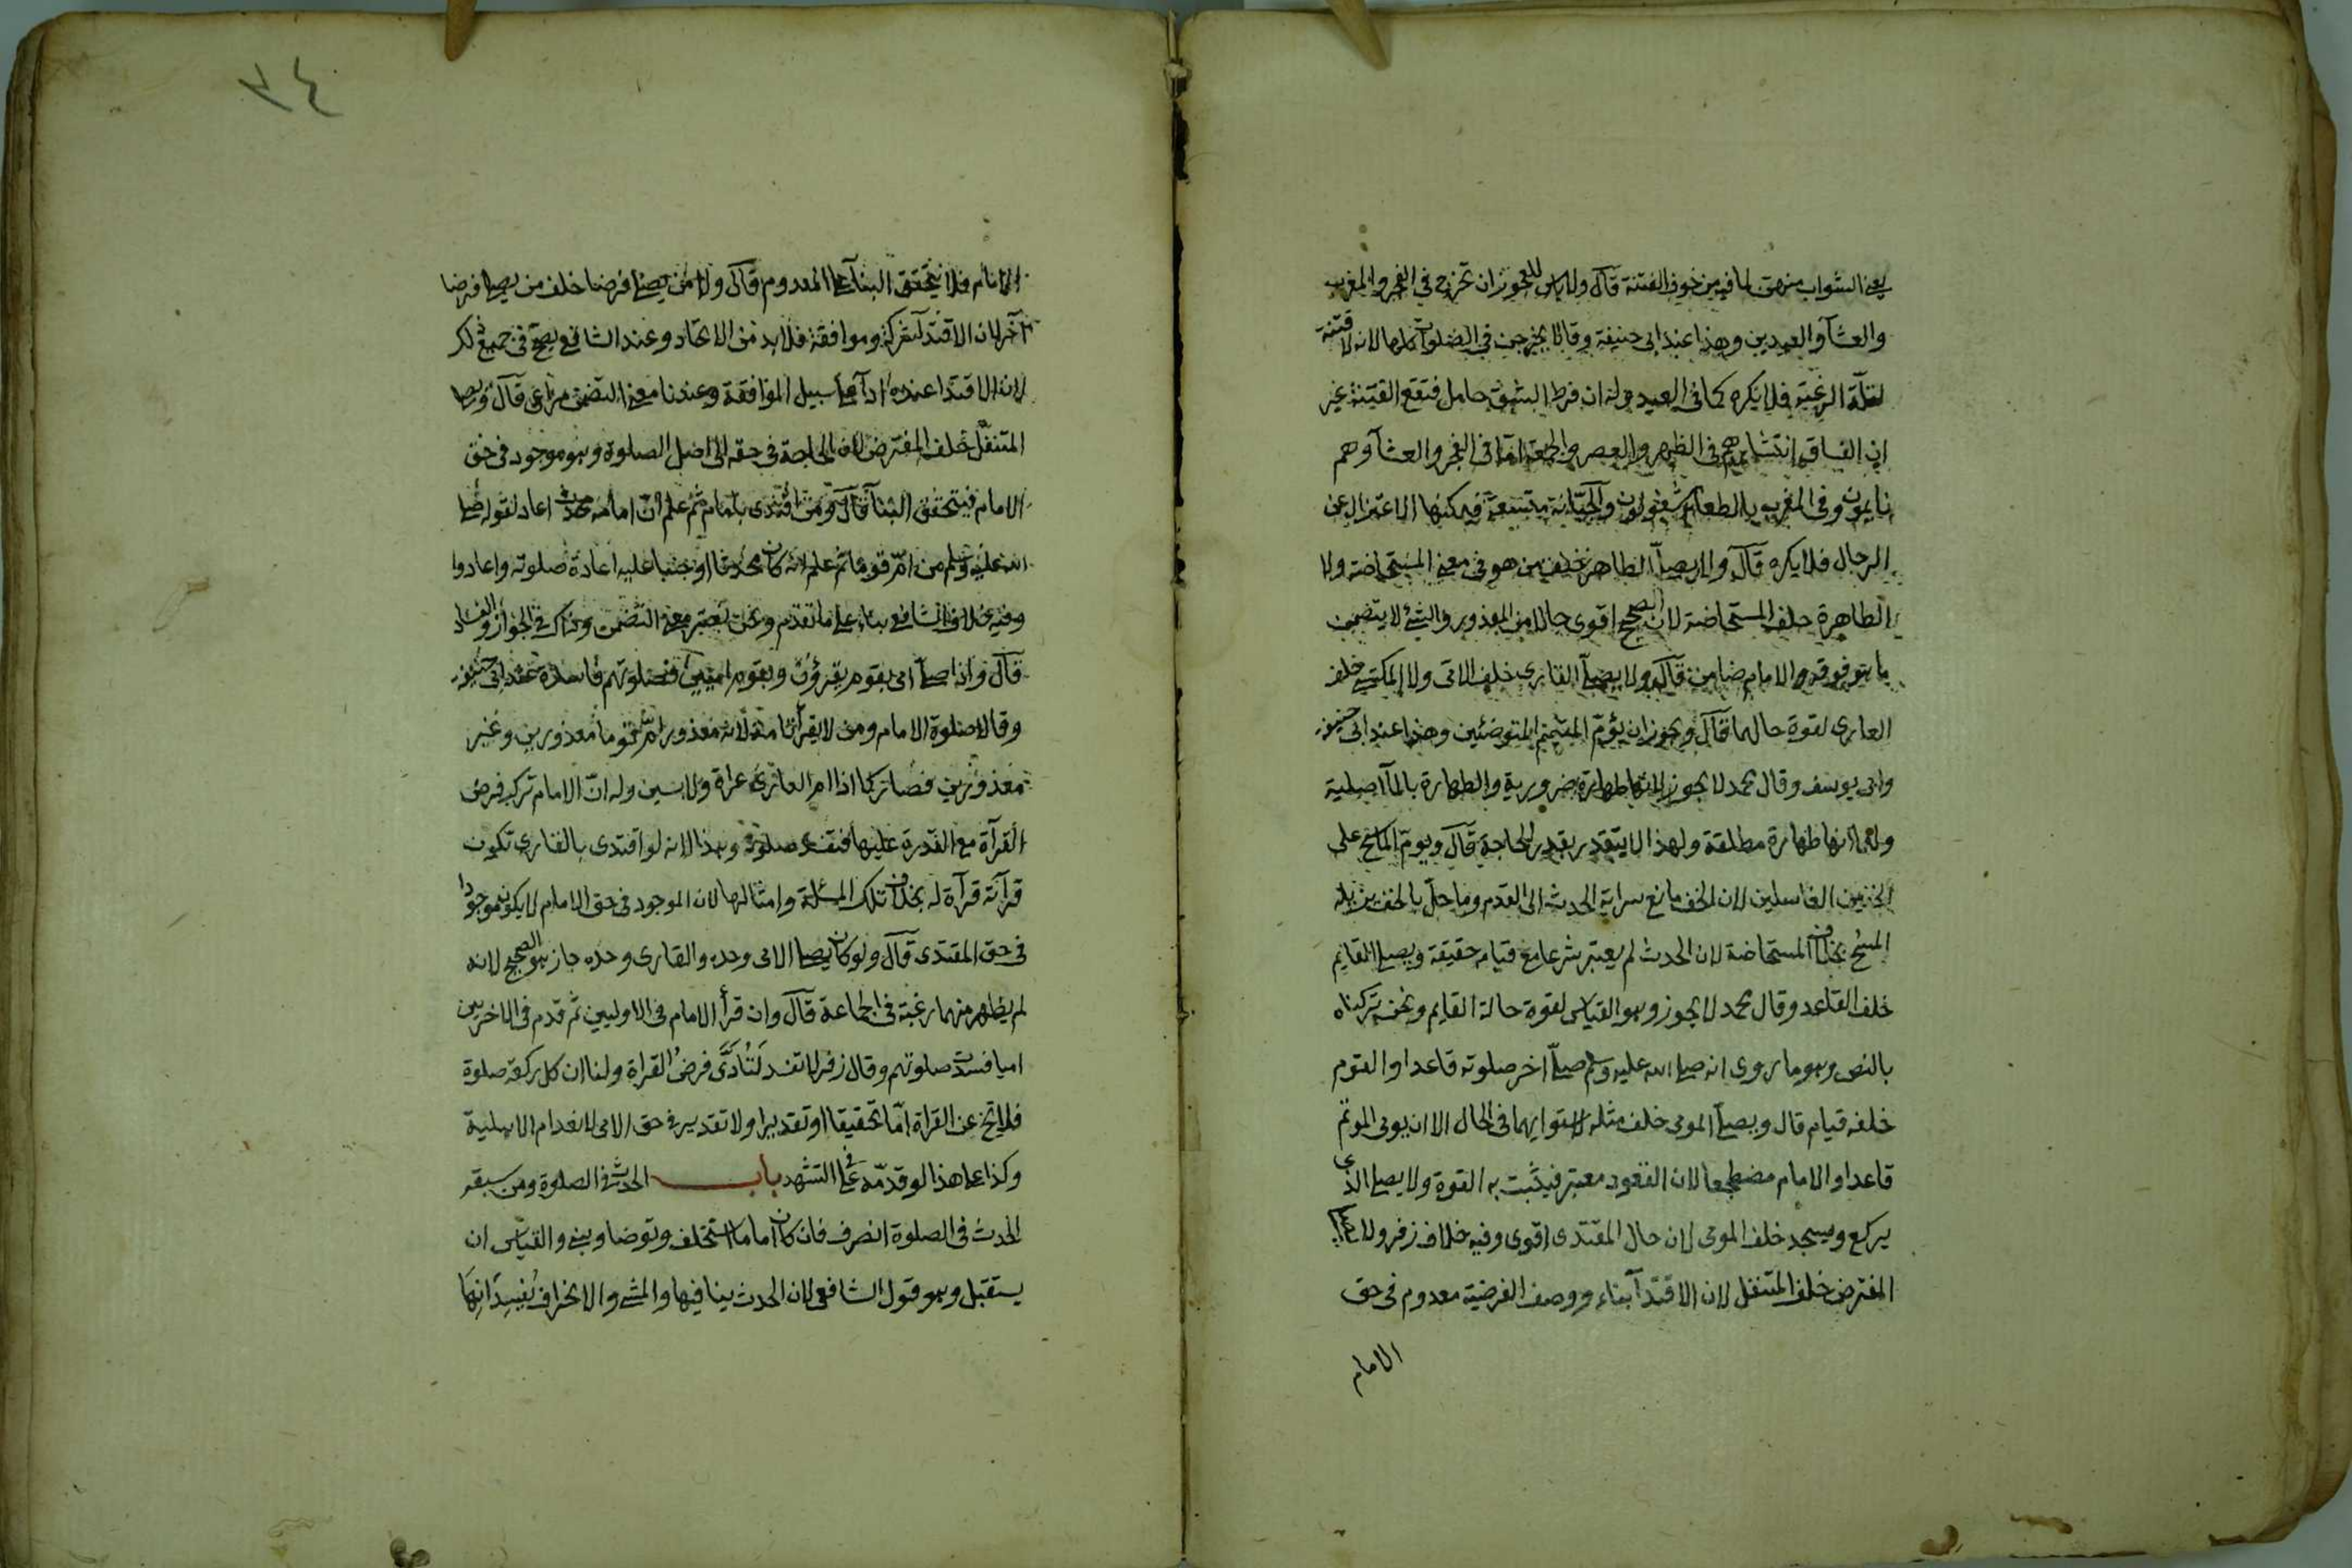 يعني الشواب منهن لما فيه من خوف الفتنة قال ولا باس للعجوز ان تخرج في الفجر والمغرب
والعشآ والعيدين وهذا عند ابى حنيفة وقالا يخرجن في الصلوات كلها لانه لا فتنة
لقلة الرغبة فلا يكره كما فى العيد وله ان فرط الشبق حامل فتقع الفتنة غير
ان الفساق انتشارهم فى الظهر والعصر والجمعة اما فى الفجر والعشآ وهم
نايمون وفى المغرب بالطعام مشغولون والجبانة متسعة فيمكنها الاعتزال عن
الرجال فلا يكره قال ولا يصلى الطاهر خلف من هو فى معنى المستحاضة ولا
الطاهرة خلف المستحاضة لان الصحيح اقوى حالا من المعذور والشئ لا يتضمن
ما هو فوقه والامام ضامن قال ولا يصلى القارى خلف الامى ولا المكتسى خلف
العارى لقوة حالهما قال ويجوز ان يؤم المتيمم المتوضئين وهذا عند ابى حنيفة
وابى يوسف وقال محمد لا يجوز لانها طهارة ضرورية والطهارة بالمآ اصلية
ولهما انها طهارة مطلقة ولهذا لا يتقدر بقدر الحاجة قال ويوم الماسح على
الخفين الغاسلين لان الخف مانع سراية الحدث الى القدم وما حل بالخف يزيله
المسح بخلاف المستحاضة لان الحدث لم يعتبر شرعا مع قيامه حقيقة ويصلى القايم
خلف القاعد وقال محمد لا يجوز وهو القياس لقوة حالة القايم ونحن تركناه
بالنص وهو ما روى انه صلى الله عليه وسلم صلى اخر صلوته قاعدا والقوم
خلفه قيام قال ويصلى المومى خلف مثله لاستوايهما فى الحال الا ان يومى الموتم
قاعدا والامام مضطجعا لان القعود معتبر فيثبت به القوة ولا يصلى الذى
يركع ويسجد خلف المومى لان حال المقتدى اقوى وفيه خلاف زفر ولا يصلى
المفترض خلف المتنفل لان الاقتدآ بناء ووصف الفرضية معدوم فى حق
الامام
٣٤
الامام فلا يتحقق البنآ على المعدوم قال ولا من يصلى فرضا خلف من يصلى فرضا
آخر لان الاقتدآ شركة وموافقة فلا بد من الاتحاد وعند الشافعى يصح فى جميع ذلك
لان الاقتدا عنده ادآ على سبيل الموافقة وعندنا معنى التضمن مراعى قال ويصلى
المتنفل خلف المفترض لان الحاجة فى حقه الى اصل الصلوة وهو موجود فى حق
الامام فيتحقق البنآ قال ومن اقتدى بامام ثم علم ان امامه محدث اعاد لقوله صلى
الله عليه وسلم من ام قوما ثم علم انه كان محدثا او جنبا عليه اعادة صلوته واعادوا
وفيه خلاف الشافعى بناء على ما تقدم ونحن نعتبر معنى التضمن وذاك فى الجواز والفساد
قال واذا صلى امى بقوم يقرؤن وبقوم اميين فصلوتهم فاسدة عند ابى حنيفة
وقالا صلوة الامام ومن لا يقرأ تامة لانه معذور ام قوما معذورين وغير
معذورين فصار كما اذا ام العارى عراة ولابسين وله ان الامام ترك فرض
القرآة مع القدرة عليها فتفسد صلوته وهذا لانه لو اقتدى بالقارى تكون
قرآته قرآة له بخلاف تلك المسئلة وامثالها لان الموجود فى حق الامام لا يكون موجودا
فى حق المقتدى قال ولو كان يصلى الامى وحده والقارى وحده جاز هو الصحيح لانه
لم يظهر منهما رغبة فى الجماعة قال وان قرأ الامام فى الاوليين ثم قدم فى الاخريين
اميا فسدت صلوتهم وقال زفر لا تفسد لتادى فرض القراة ولنا ان كل ركعة صلوة
فلا تخ عن القراة اما تحقيقا او تقديرا ولا تقدير فى حق الامى لانعدام الاهلية
وكذا على هذا لو قدمه فى التشهد باب الحدث فى الصلوة ومن سبقه
الحدث فى الصلوة انصرف فان كان اماما استخلف وتوضا وبنى والقياس ان
يستقبل وهو قول الشافعى لان الحدث ينافيها والمشى والانحراف يفسدانها